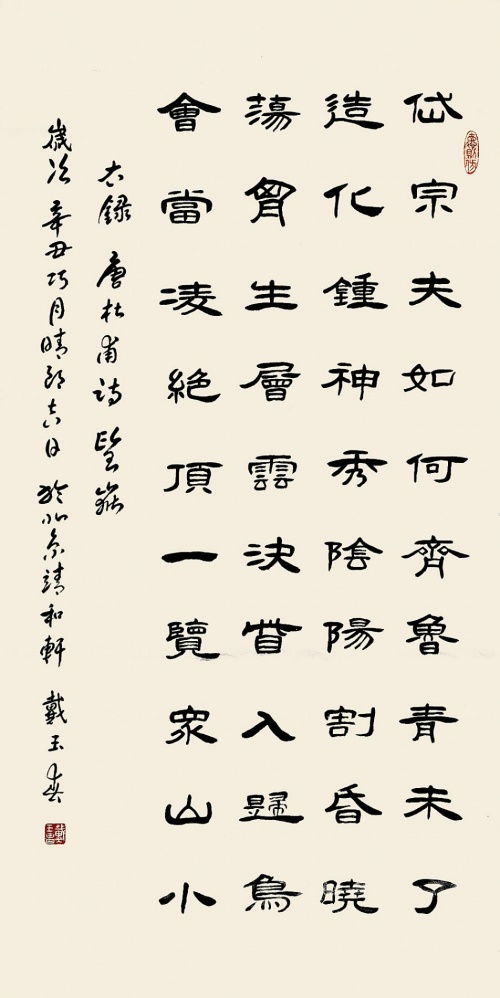 岱宗夫如何齊魯青未了
造化鍾神秀陰陽割昏曉
蕩胷生層雲決眥入歸鳥
會當凌絶頂一覽眾山小
右錄唐杜甫詩望嶽
歲次辛丑巧月晴朗吉日於北京靖和軒戴玉春